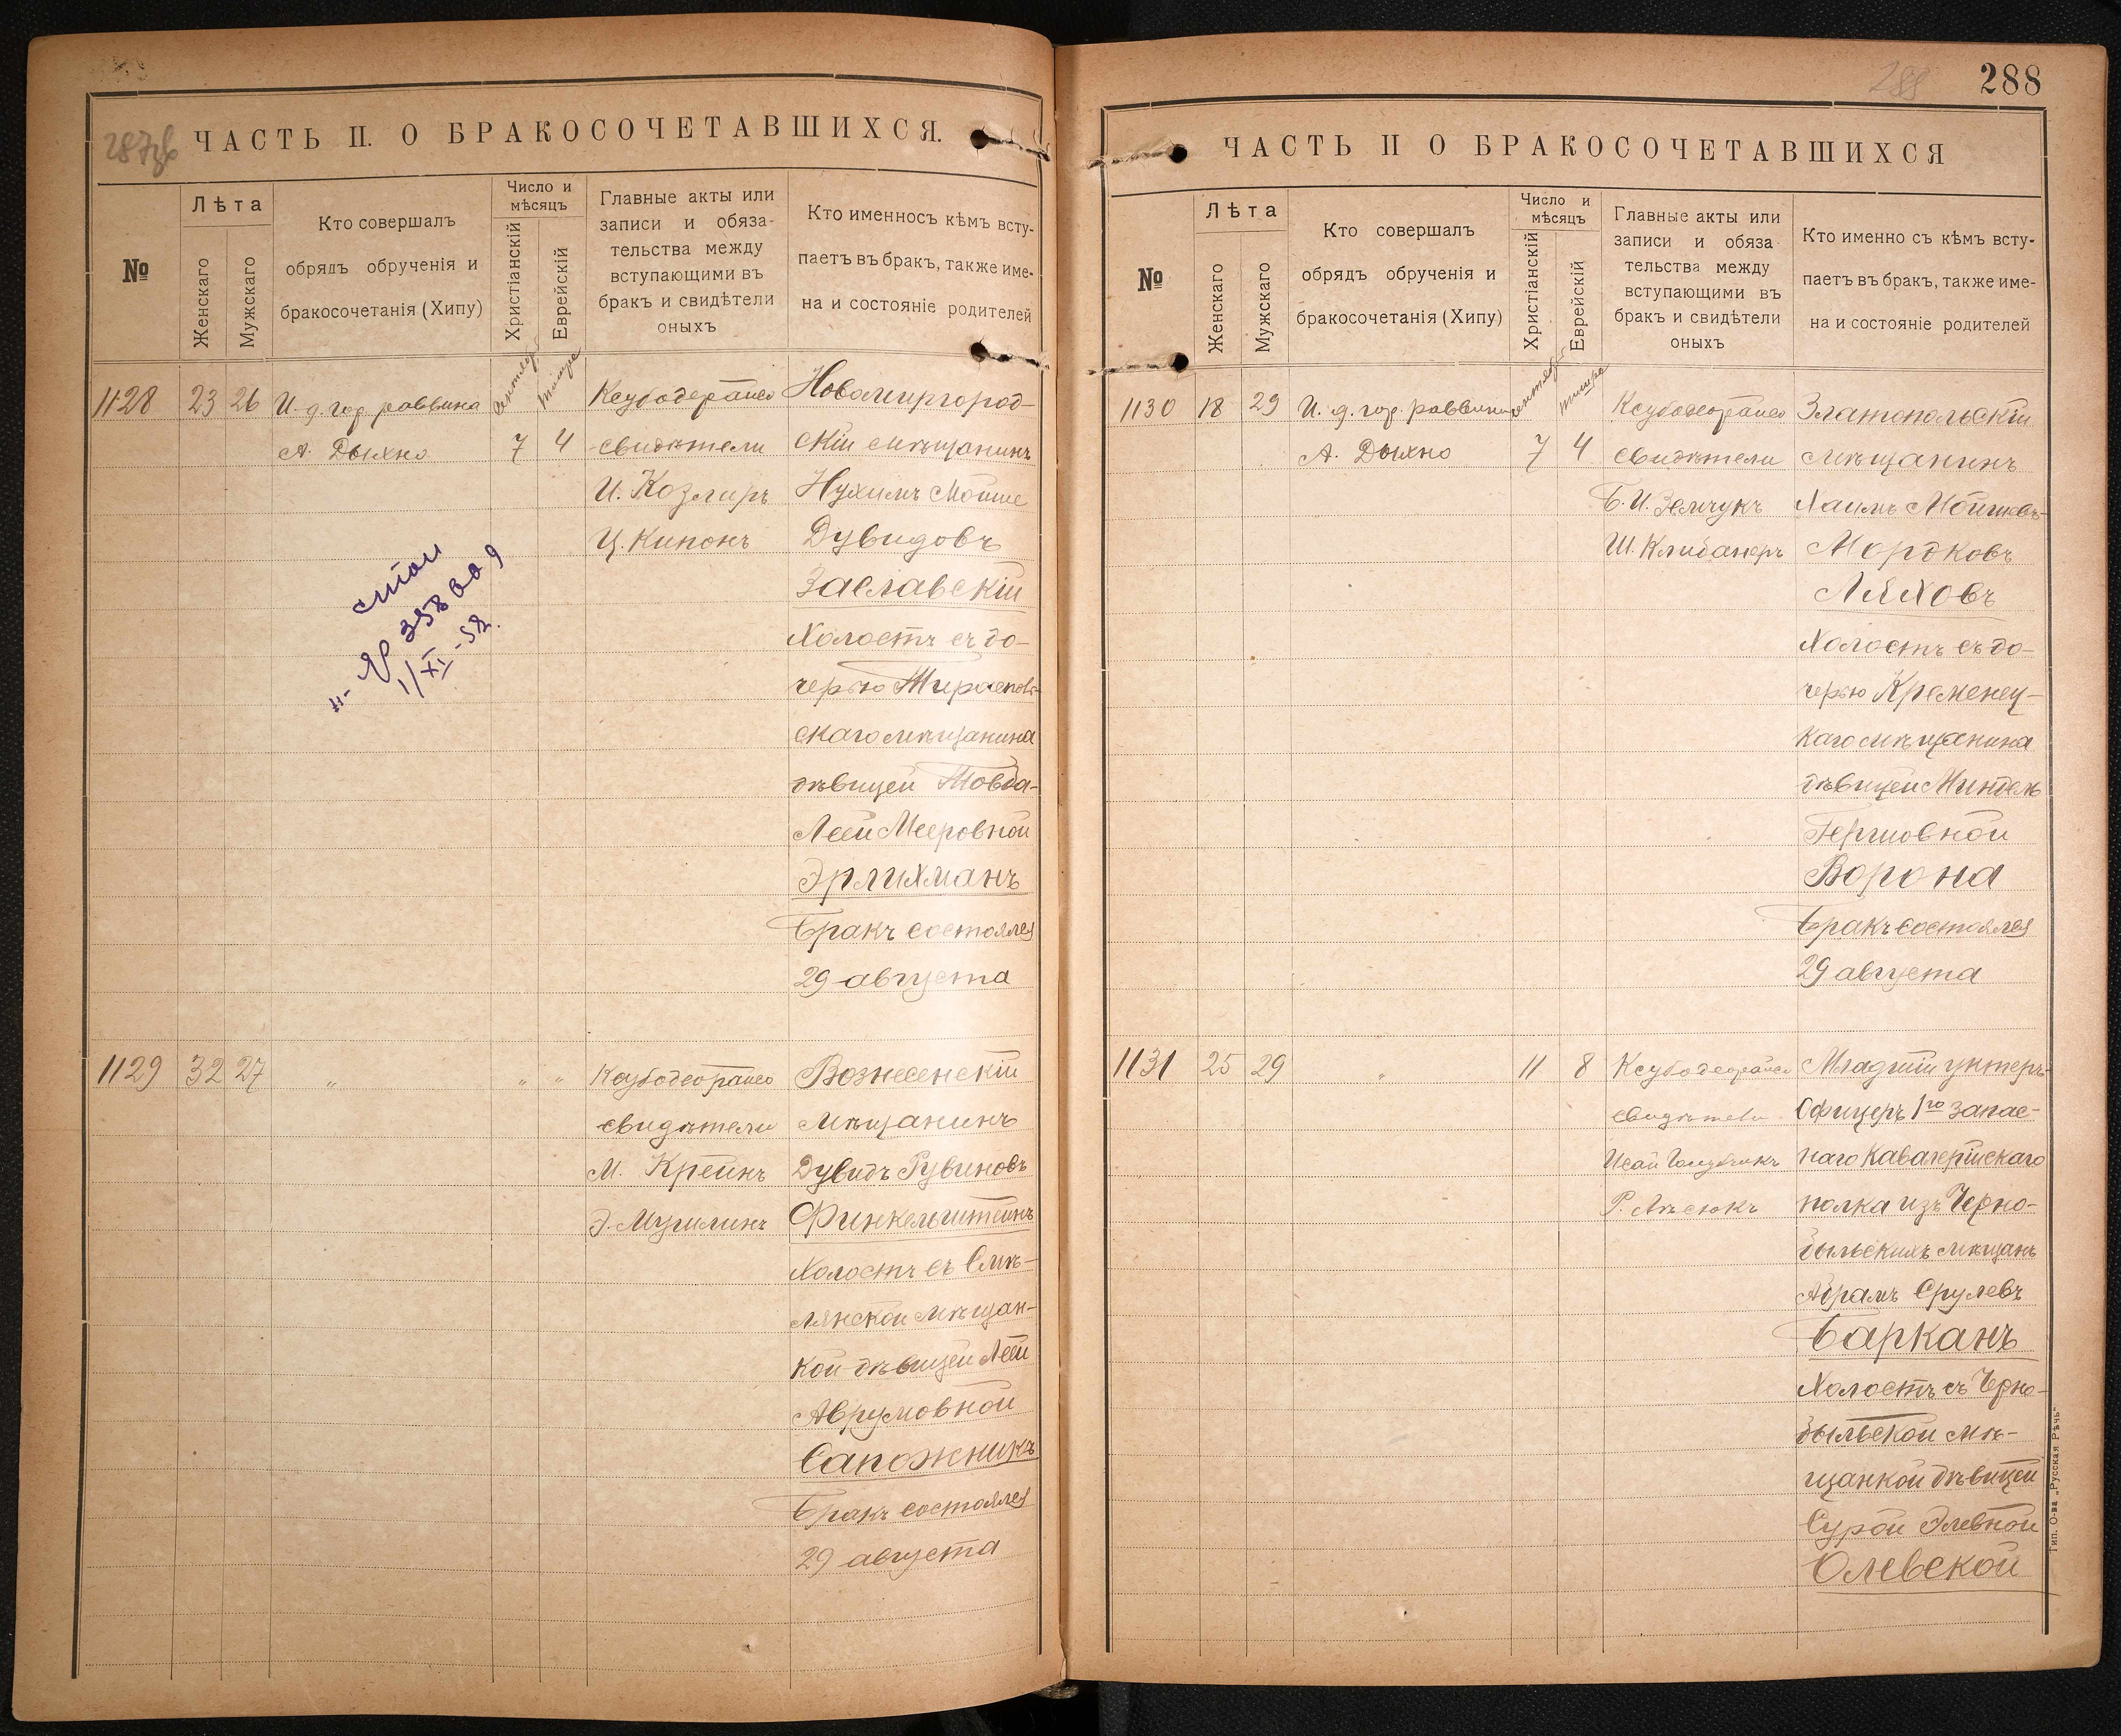 287 об
ЧАСТЬ II. О БРАКОСОЧЕТАВШИХСЯ.
№
Лѣта
Женскаго
Мужскаго
Кто совершалъ
обрядъ обрученія и
бракосочетанія (Хипу)
Число и
мѣсяцъ
Христіанскій
Еврейскій
Главные акты или
записи и обяза-
тельства между
вступающими въ
бракъ и свидѣтели
оныхъ
Кто именносъ кѣмъ всту-
паетъ въ бракъ, также име-
на и состояніе родителей
1128 23 26
И. д. гор. раввина
А. Дыхно
Сентябр
тишре
7 4
свидѣтели
И. Козлиръ
Ц. Кипонъ
Новомиргород-
скій мѣщанинъ
Нухимъ Мойше
Дувидовъ
Заславскій
Холостъ съ до-
черью Тирасполь-
скаго мѣщанина
дѣвицей Товба-
Леей Мееровной
Эрлихманъ
Бракъ состоялся
29 августа
№ 358009
1/XI-52.
1129 32 27 " " "
свидѣтели
М. Крейнъ
Э. Мугилинъ
Вознесенскій
Мѣщанинъ
Дувидъ Рувиновъ
Финкельштейнъ
Холостъ съ Смѣ-
лянской мѣщан-
кой дѣвицей Леей
Аврумовной
Сапожникъ
Бракъ состоялся
29 августа
288
288
ЧАСТЬ II О БРАКОСОЧЕТАВШИХСЯ
№
Лѣта
Женскаго
Мужскаго
Кто совершалъ
обрядъ обрученія и
бракосочетанія (Хипу)
Число и
мѣсяцъ
Христіанскій
Еврейскій
Главные акты или
записи и обяза
тельства между
вступающими въ
бракъ и свидѣтели
оныхъ
Кто именно съ кѣмъ всту-
паетъ въ бракъ, также име-
на и состояніе родителей
1130 18 29
И. д. гор. раввина
А. Дыхно
сентябр
тишре
7 4
свидѣтели
Б. И. Земчукъ
Ш. Клибанеръ
Златопольскій
мѣщанинъ
Хаимъ Мойшевъ-
Мордковъ
Ляховъ
Холостъ съ до-
черью Кременец-
каго мѣщанина
дѣвицей Миндель
Гершовной
Ворона
Бракъ состоялся
29 августа
1131 25 29 " 11 8
свидѣтели
Р. Лѣсюкъ
Младшій унтеръ-
Офицеръ 1го запас-
наго Кавалерійскаго
полка изъ Черно-
быльскихъ мѣщанъ
Абрамъ Срулевъ
Барканъ
Холостъ съ Черно-
быльской мѣ-
щанкой дѣвицей
Сурой Элевной
Олевской
Тип. О-ва „Русская Рѣчь"